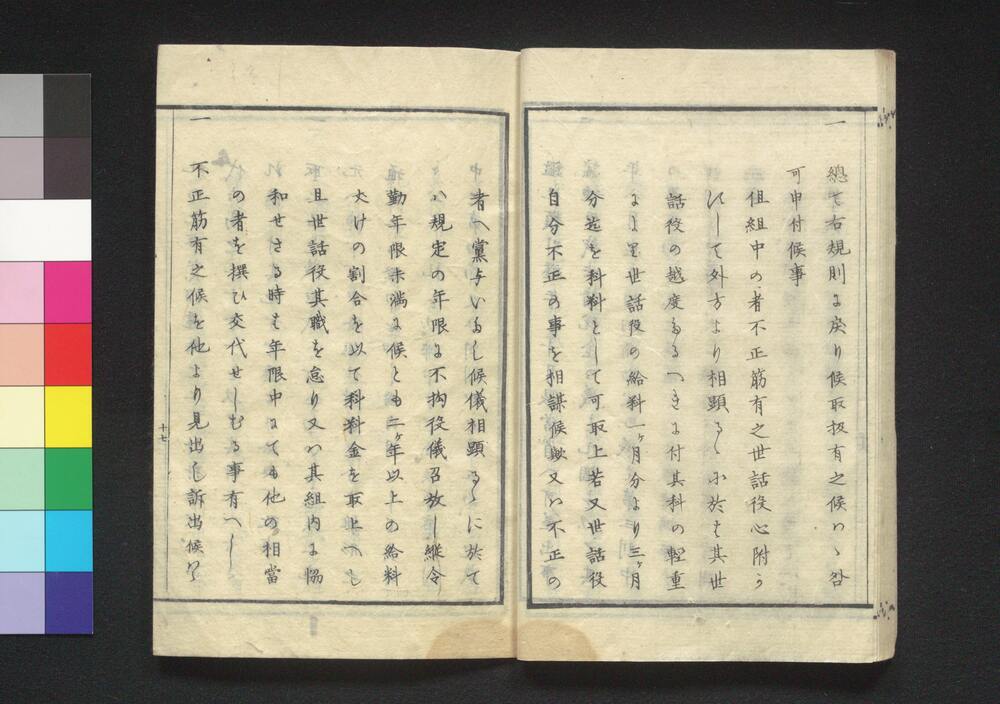 一
総て右規則に戻り候取扱有之候ハヽ咎
可申付候事
但組中の者不正筋有之世話役心附う
にして外方より相顕るゝ於は其世
話役の越度たるへきに付其科の軽重
により世話役の給料一ヶ月分より三ヶ月
分迄を科料として可取上若又世話役
自分不正の事を相謀候歟又ハ不正の
者へ黨与いたし候儀相顕るゝに於て
ハ規定の年限に不拘役儀召放し縦令
勤年限未満に候とも二ヶ年以上の給料
大けの割合を以て科料金を取上へし
且世話役其職を怠り又ハ其組内に恊
和せさる時は年限中にても他の相當
の者を撰ひ交代せしむる事有へし
一
不正筋有之候を他より見出し訴出候ハヽ
十七